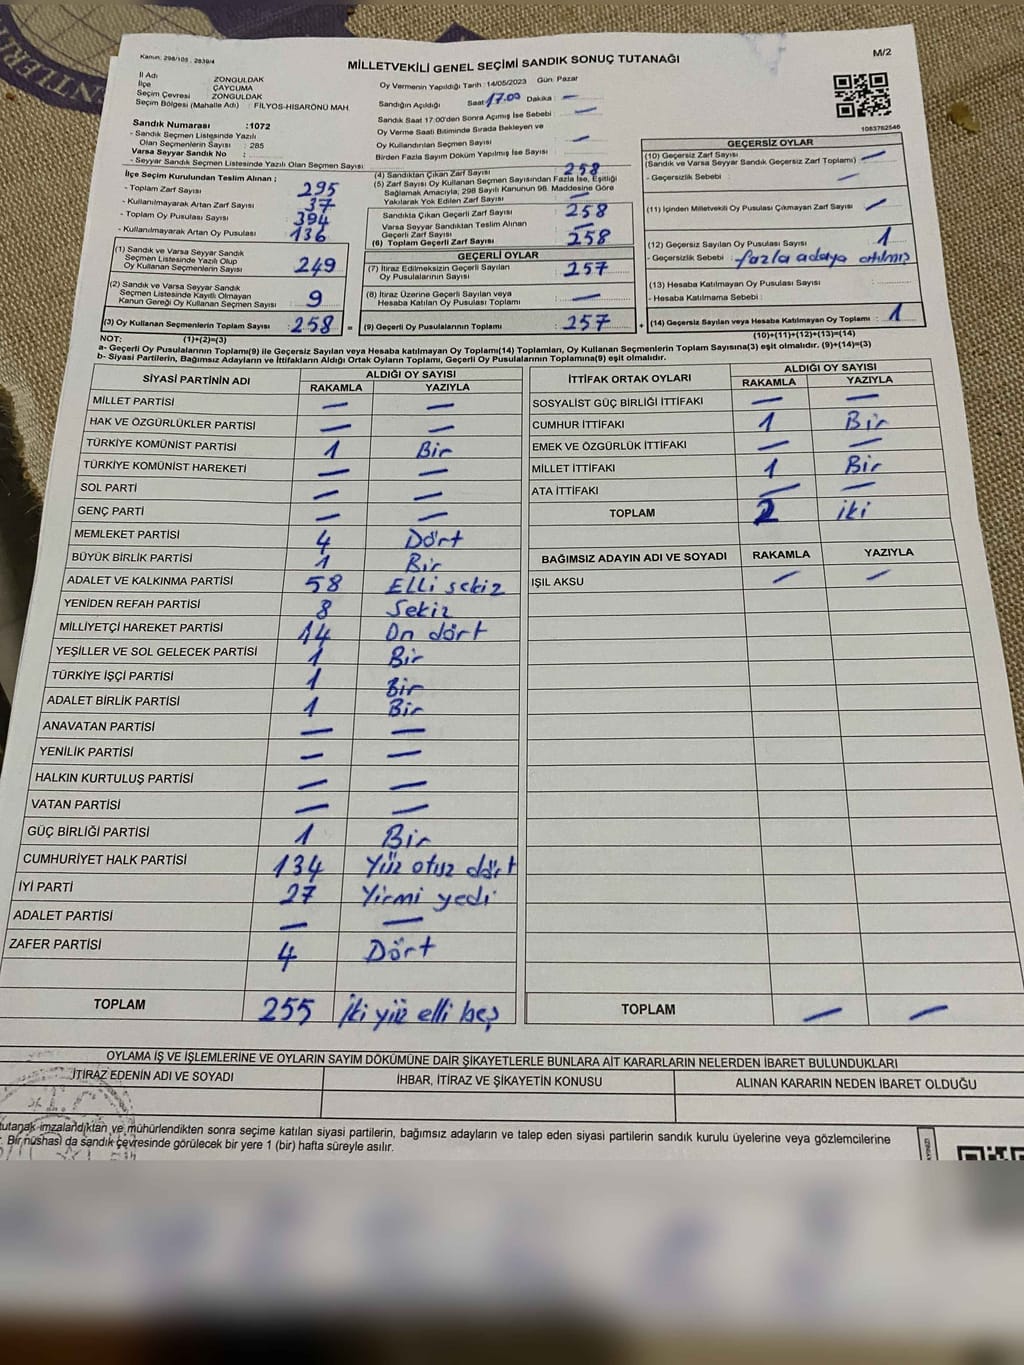 Kanun: 298/105 , 2839/4
MİLLETVEKİLİ GENEL SEÇİMİ SANDIK SONUÇ TUTANAĞI
M/2
İl Adı ZONGULDAK
İlçe ÇAYCUMA
Seçim Çevresi ZONGULDAK
Seçim Bölgesi (Mahalle Adı) : FİLYOS-HİSARÖNÜ MAH.
Sandık Numarası :1072
- Sandık Seçmen Listesinde Yazılı
Olan Seçmenlerin Sayısı : 285
Varsa Seyyar Sandık No :
- Seyyar Sandık Seçmen Listesinde Yazılı Olan Seçmen Sayısı
İlçe Seçim Kurulundan Teslim Alınan ;
- Toplam Zarf Sayısı : 295
- Kullanılmayarak Artan Zarf Sayısı : 37
- Toplam Oy Pusulası Sayısı : 394
- Kullanılmayarak Artan Oy Pusulası : 136
(1) Sandık ve Varsa Seyyar Sandık
Seçmen Listesinde Yazılı Olup
Oy Kullanan Seçmenlerin Sayısı : 249
(2) Sandık ve Varsa Seyyar Sandık
Seçmen Listesinde Kayıtlı Olmayan
Kanun Gereği Oy Kullanan Seçmen Sayısı : 9
(3) Oy Kullanan Seçmenlerin Toplam Sayısı : 258 =
Oy Vermenin Yapıldığı Tarih : 14/05/2023 Gün: Pazar
Sandığın Açıldığı Saat 17.00 Dakika : —
Sandık Saat 17:00'den Sonra Açılmış İse Sebebi : —
Oy Verme Saati Bitiminde Sırada Bekleyen ve
Oy Kullandırılan Seçmen Sayısı : —
Birden Fazla Sayım Döküm Yapılmış İse Sayısı :
(4) Sandıktan Çıkan Zarf Sayısı : 258
(5) Zarf Sayısı Oy Kullanan Seçmen Sayısından Fazla İse, Eşitliği
Sağlamak Amacıyla, 298 Sayılı Kanunun 98. Maddesine Göre
Yakılarak Yok Edilen Zarf Sayısı : —
Sandıkta Çıkan Geçerli Zarf Sayısı : 258
Varsa Seyyar Sandıktan Teslim Alınan
Geçerli Zarf Sayısı : —
(6) Toplam Geçerli Zarf Sayısı : 258
GEÇERLİ OYLAR
(7) İtiraz Edilmeksizin Geçerli Sayılan
Oy Pusulalarının Sayısı : 257
(8) İtiraz Üzerine Geçerli Sayılan veya
Hesaba Katılan Oy Pusulası Toplamı : —
(9) Geçerli Oy Pusulalarının Toplamı : 257 +
1083782546
GEÇERSİZ OYLAR
(10) Geçersiz Zarf Sayısı
(Sandık ve Varsa Seyyar Sandık Geçersiz Zarf Toplamı) : —
- Geçersizlik Sebebi : —
(11) İçinden Milletvekili Oy Pusulası Çıkmayan Zarf Sayısı : —
(12) Geçersiz Sayılan Oy Pusulası Sayısı : 1
- Geçersizlik Sebebi : fazla adaya atılmış
(13) Hesaba Katılmayan Oy Pusulası Sayısı :
- Hesaba Katılmama Sebebi :
(14) Geçersiz Sayılan veya Hesaba Katılmayan Oy Toplamı : 1
NOT: (1)+(2)=(3) (10)+(11)+(12)+(13)=(14)
a- Geçerli Oy Pusulalarının Toplamı(9) ile Geçersiz Sayılan veya Hesaba katılmayan Oy Toplamı(14) Toplamları, Oy Kullanan Seçmenlerin Toplam Sayısına(3) eşit olmalıdır. (9)+(14)=(3)
b- Siyasi Partilerin, Bağımsız Adayların ve İttifakların Aldığı Oy Sayıları Ortak Oyların Toplamı, Geçerli Oy Pusulalarının Toplamına(9) eşit olmalıdır.
SİYASİ PARTİNİN ADI ALDIĞI OY SAYISI
RAKAMLA YAZIYLA
MİLLET PARTİSİ — —
HAK VE ÖZGÜRLÜKLER PARTİSİ — —
TÜRKİYE KOMÜNİST PARTİSİ 1 Bir
TÜRKİYE KOMÜNİST HAREKETİ — —
SOL PARTİ — —
GENÇ PARTİ — —
MEMLEKET PARTİSİ 4 Dört
BÜYÜK BİRLİK PARTİSİ 1 Bir
ADALET VE KALKINMA PARTİSİ 58 Elli sekiz
YENİDEN REFAH PARTİSİ 8 Sekiz
MİLLİYETÇİ HAREKET PARTİSİ 14 On dört
YEŞİLLER VE SOL GELECEK PARTİSİ 1 Bir
TÜRKİYE İŞÇİ PARTİSİ 1 Bir
ADALET BİRLİK PARTİSİ 1 Bir
ANAVATAN PARTİSİ — —
YENİLİK PARTİSİ — —
HALKIN KURTULUŞ PARTİSİ — —
VATAN PARTİSİ — —
GÜÇ BİRLİĞİ PARTİSİ 1 Bir
CUMHURİYET HALK PARTİSİ 134 Yüz otuz dört
İYİ PARTİ 27 Yirmi yedi
ADALET PARTİSİ — —
ZAFER PARTİSİ 4 Dört
TOPLAM 255 İki yüz elli beş
İTTİFAK ORTAK OYLARI ALDIĞI OY SAYISI
RAKAMLA YAZIYLA
SOSYALİST GÜÇ BİRLİĞİ İTTİFAKI — —
CUMHUR İTTİFAKI 1 Bir
EMEK VE ÖZGÜRLÜK İTTİFAKI — —
MİLLET İTTİFAKI 1 Bir
ATA İTTİFAKI — —
TOPLAM 2 iki
BAĞIMSIZ ADAYIN ADI VE SOYADI RAKAMLA YAZIYLA
IŞIL AKSU — —
TOPLAM — —
OYLAMA İŞ VE İŞLEMLERİNE VE OYLARIN SAYIM DÖKÜMÜNE DAİR ŞİKAYETLERLE BUNLARA AİT KARARLARIN NELERDEN İBARET BULUNDUKLARI
İTİRAZ EDENİN ADI VE SOYADI İHBAR, İTİRAZ VE ŞİKAYETİN KONUSU ALINAN KARARIN NEDEN İBARET OLDUĞU
tutanak imzalandıktan ve mühürlendikten sonra seçime katılan siyasi partilerin, bağımsız adayların ve talep eden siyasi partilerin sandık kurulu üyelerine veya gözlemcilerine
Bir nüshası da sandık çevresinde görülecek bir yere 1 (bir) hafta süreyle asılır.